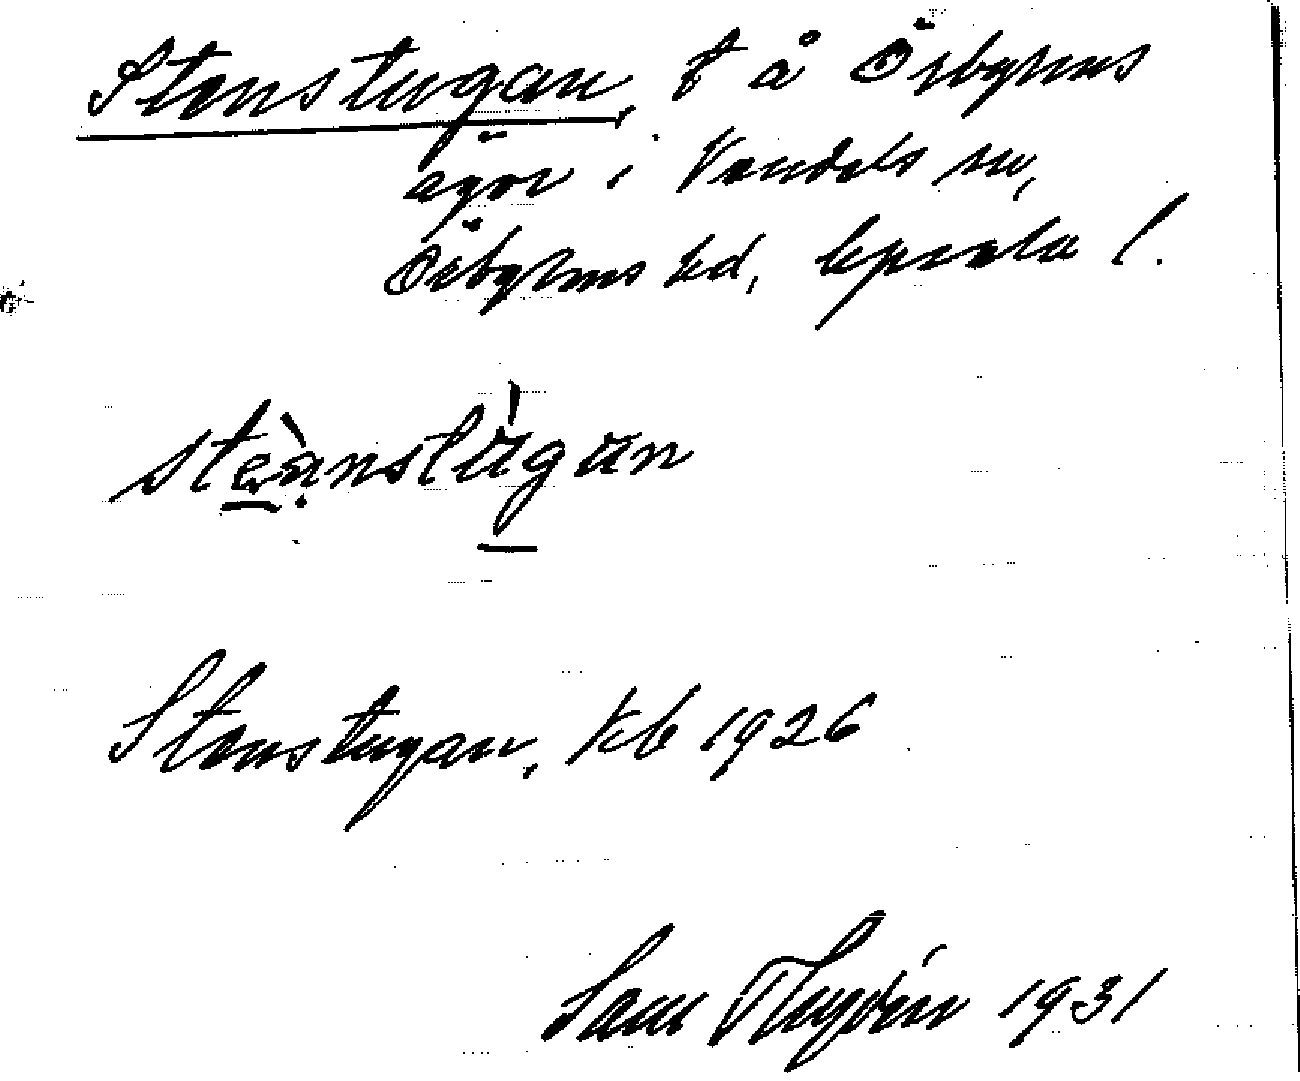 Stenstugan, t å Örbyhus
ägor i Vendels sn,
Örbyhus hd, Uppsala l.
steanstugun
Stenstugan, kb 1926
Sam Thydén 1931